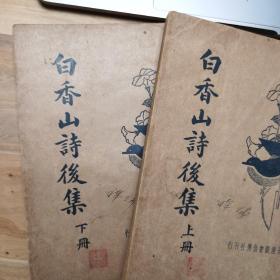 白香山詩後集
下冊
白香山詩後集
上冊